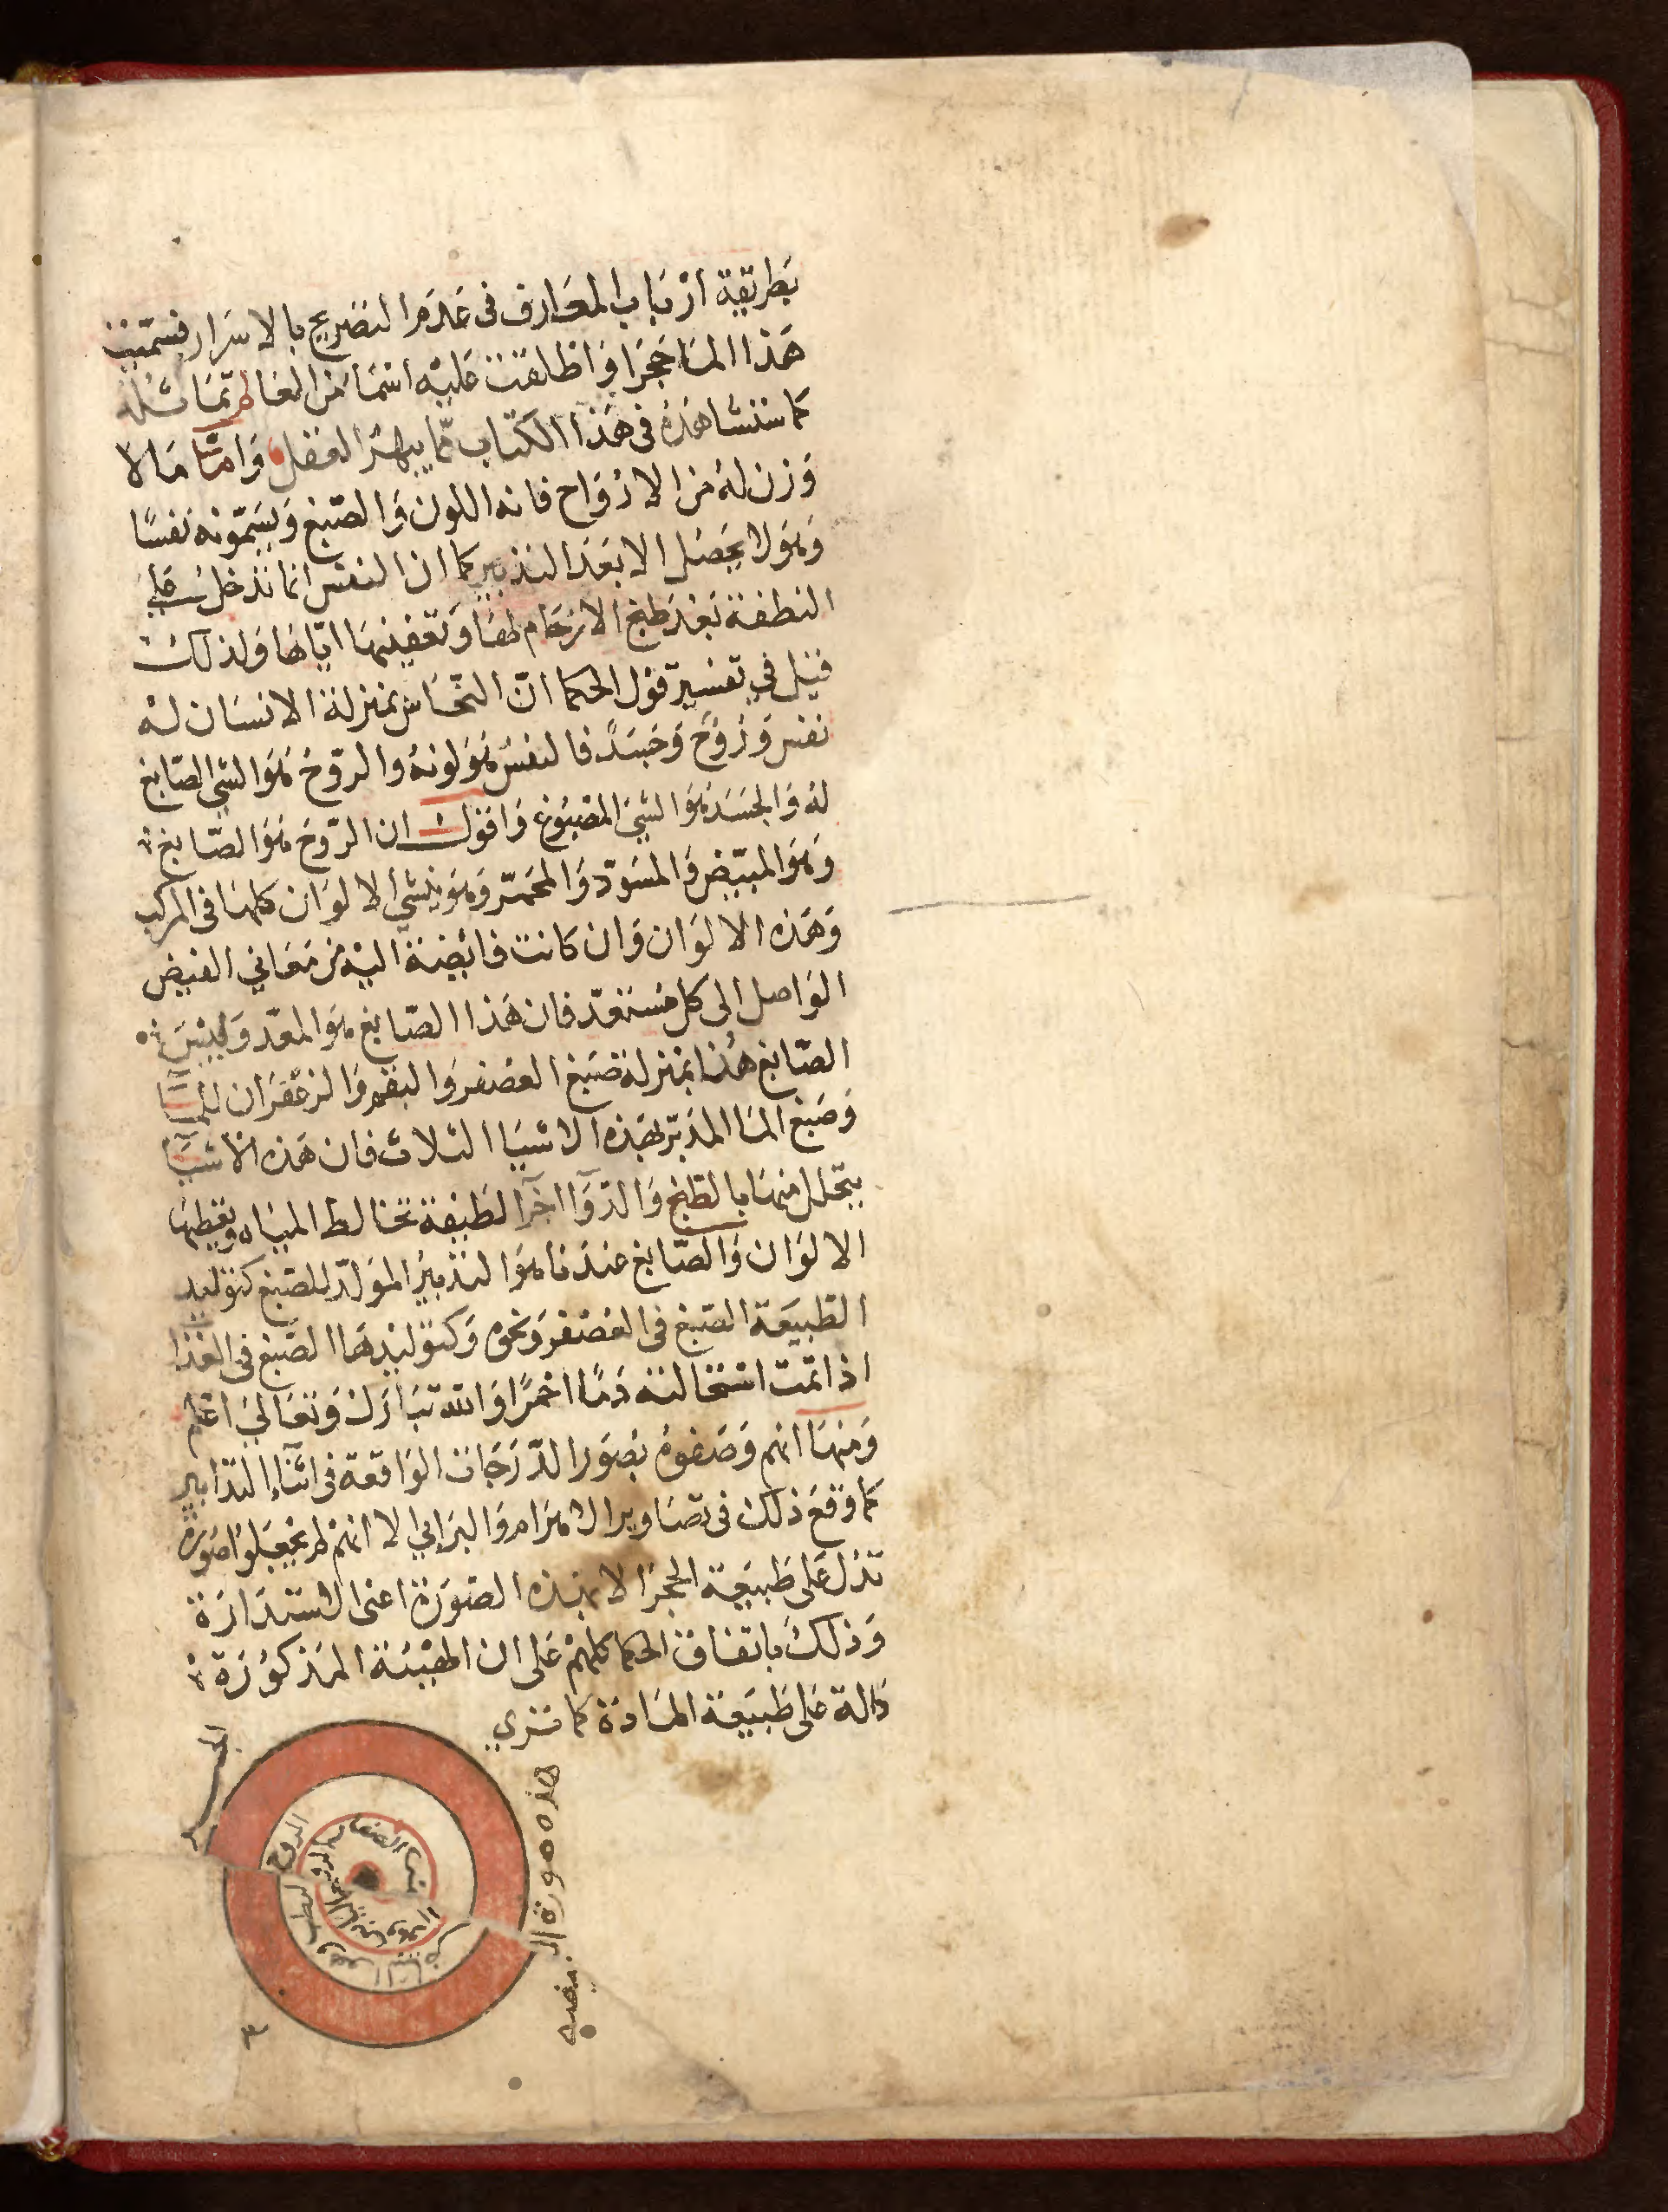 بطريقة ارباب المعارف في عدم التصريح بالاسرار فسمت
هذا الما حجرا واطلقت عليه اسما من العالم تماثله
كما ستشاهده في هذا الكتاب مما يبهر العقل واما ما لا
وزن له من الارواح فانه اللون والصبغ ويسمونه نفسا
وهو لا يحصل الا بعد التدبير كما ان النفس انما تدخل على
النطفة بعد طبخ الارحام لها وتعفينها اياها ولذلك
قيل في تفسير قول الحكما ان النحاس بمنزلة الانسان له
نفس وروح وجسد فالنفس هو لونه والروح هو الشي الصابغ
له والجسد هو الشي المصبوغ واقول ان الروح هو الصابغ
وهو المبيض والمسود والمحمر وهو ينشي الالوان كلها في المركب
وهذه الالوان وان كانت فائضة اليه من معاني الفيض
الواصل الى كل مستعد فان هذا الصابغ هو المعد وليس
الصابغ هنا بمنزلة صبغ العصفر والبقم والزعفران للما
وصبغ الما المدبر بهذه الاشيا الثلاث فان هذه الاشيا
يتحلل منها بالطبخ والدوا اجزا لطيفة تخالط المياه وتعطيها
الالوان والصابغ عندنا هو التدبير المولد للصبغ كتوليد
الطبيعة الصبغ في العصفر ونحوه وكتوليدها الصبغ في الغذا
اذا تمت استحالته دما احمرا والله تبارك وتعالى اعلم
ومنها انهم وصفوه بصور الدرجات الواقعة في اثناء التدابير
كما وقع ذلك في تصاوير الاهرام والبرابي الا انهم لم يجعلوا صورة
تدل على طبيعة الحجر الا بهذه الصورة اعنى الاستدارة
وذلك باتفاق الحكما كلهم على ان الهيئة المذكورة
دالة على طبيعة المادة كما ترى
هذه صورة
الروح